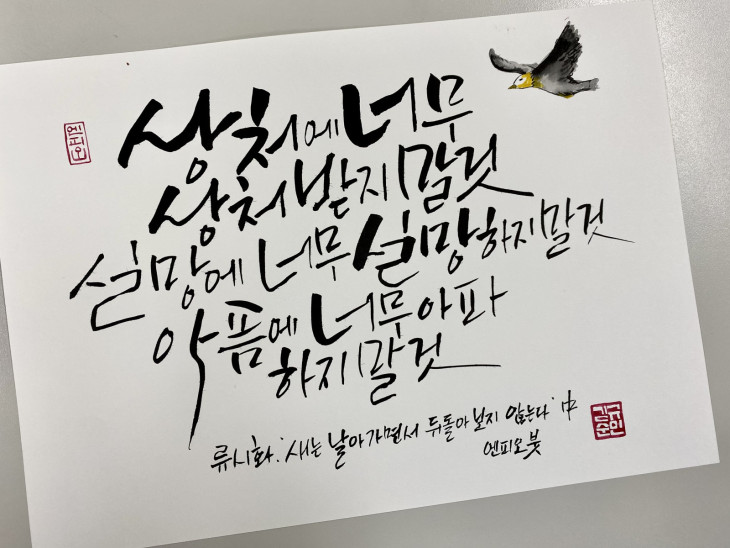 엔피오
상처에 너무
상처받지 말 것
실망에 너무 실망하지 말 것
아픔에 너무 아파
하지 말 것
류시화. '새는 날아가면서 뒤돌아보지 않는다' 中
엔피오붓